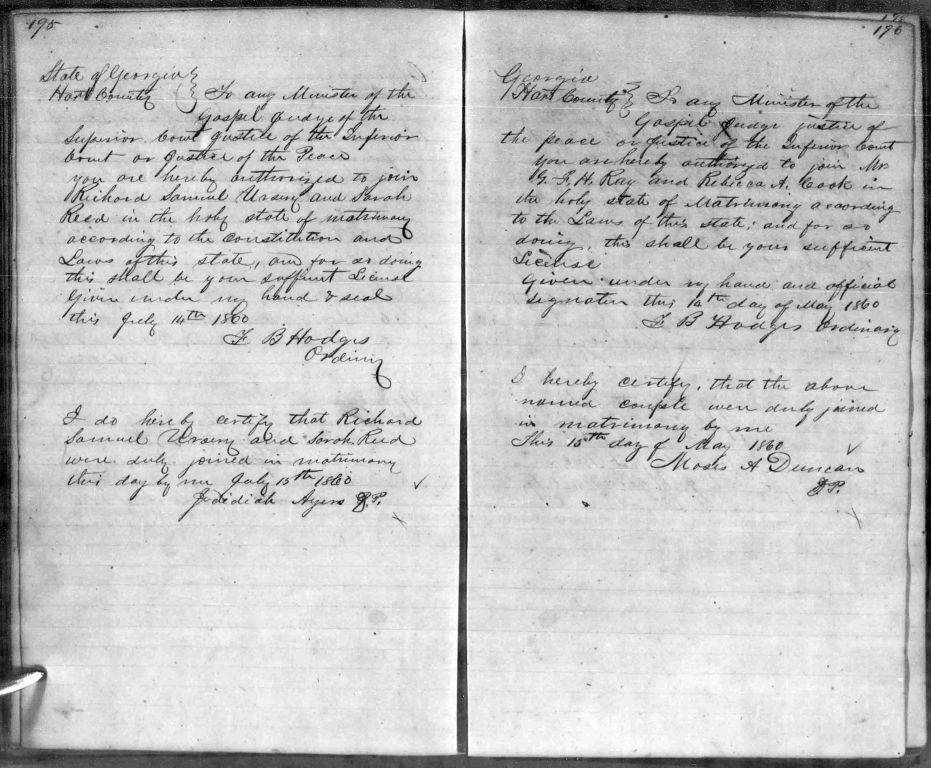 195
State of Georgia
Hart County To any Minister of the
Gospel Judge of the
Superior Court Justice of the Inferior
Court or Justice of the Peace
you are hereby authorized to join
Richard Samuel Ursery and Sarah
Reed in the holy state of matrimony
according to the constitution and
Laws of this state, and for so doing
this shall be your suffient License
Given under my hand & seal
this July 14th 1860
F. B Hodges
Ordinry
I do hereby certify that Richard
Samuel Ursery and Sarah Reed
were duly joined in matrimony
this day by me July 15th 1860
Jedidiah Ayers J.P.
196
Georgia
Hart County To any Minister of the
Gospel Judge justice of
the peace or Justice of the Inferior Court
you are hereby authorized to join Mr
G. H. Ray and Rebecca A. Cook in
the holy state of Matrimony according
to the Laws of this state; and for so
doing, this shall be your sufficient
License
Given under my hand and official
Signature this 12th day of May 1860
F B Hodges Ordinary
I hereby certify, that the above
named couple were duly joined
in matrimony by me
This 15th day of May 1860
Moses A Duncan
J.P.